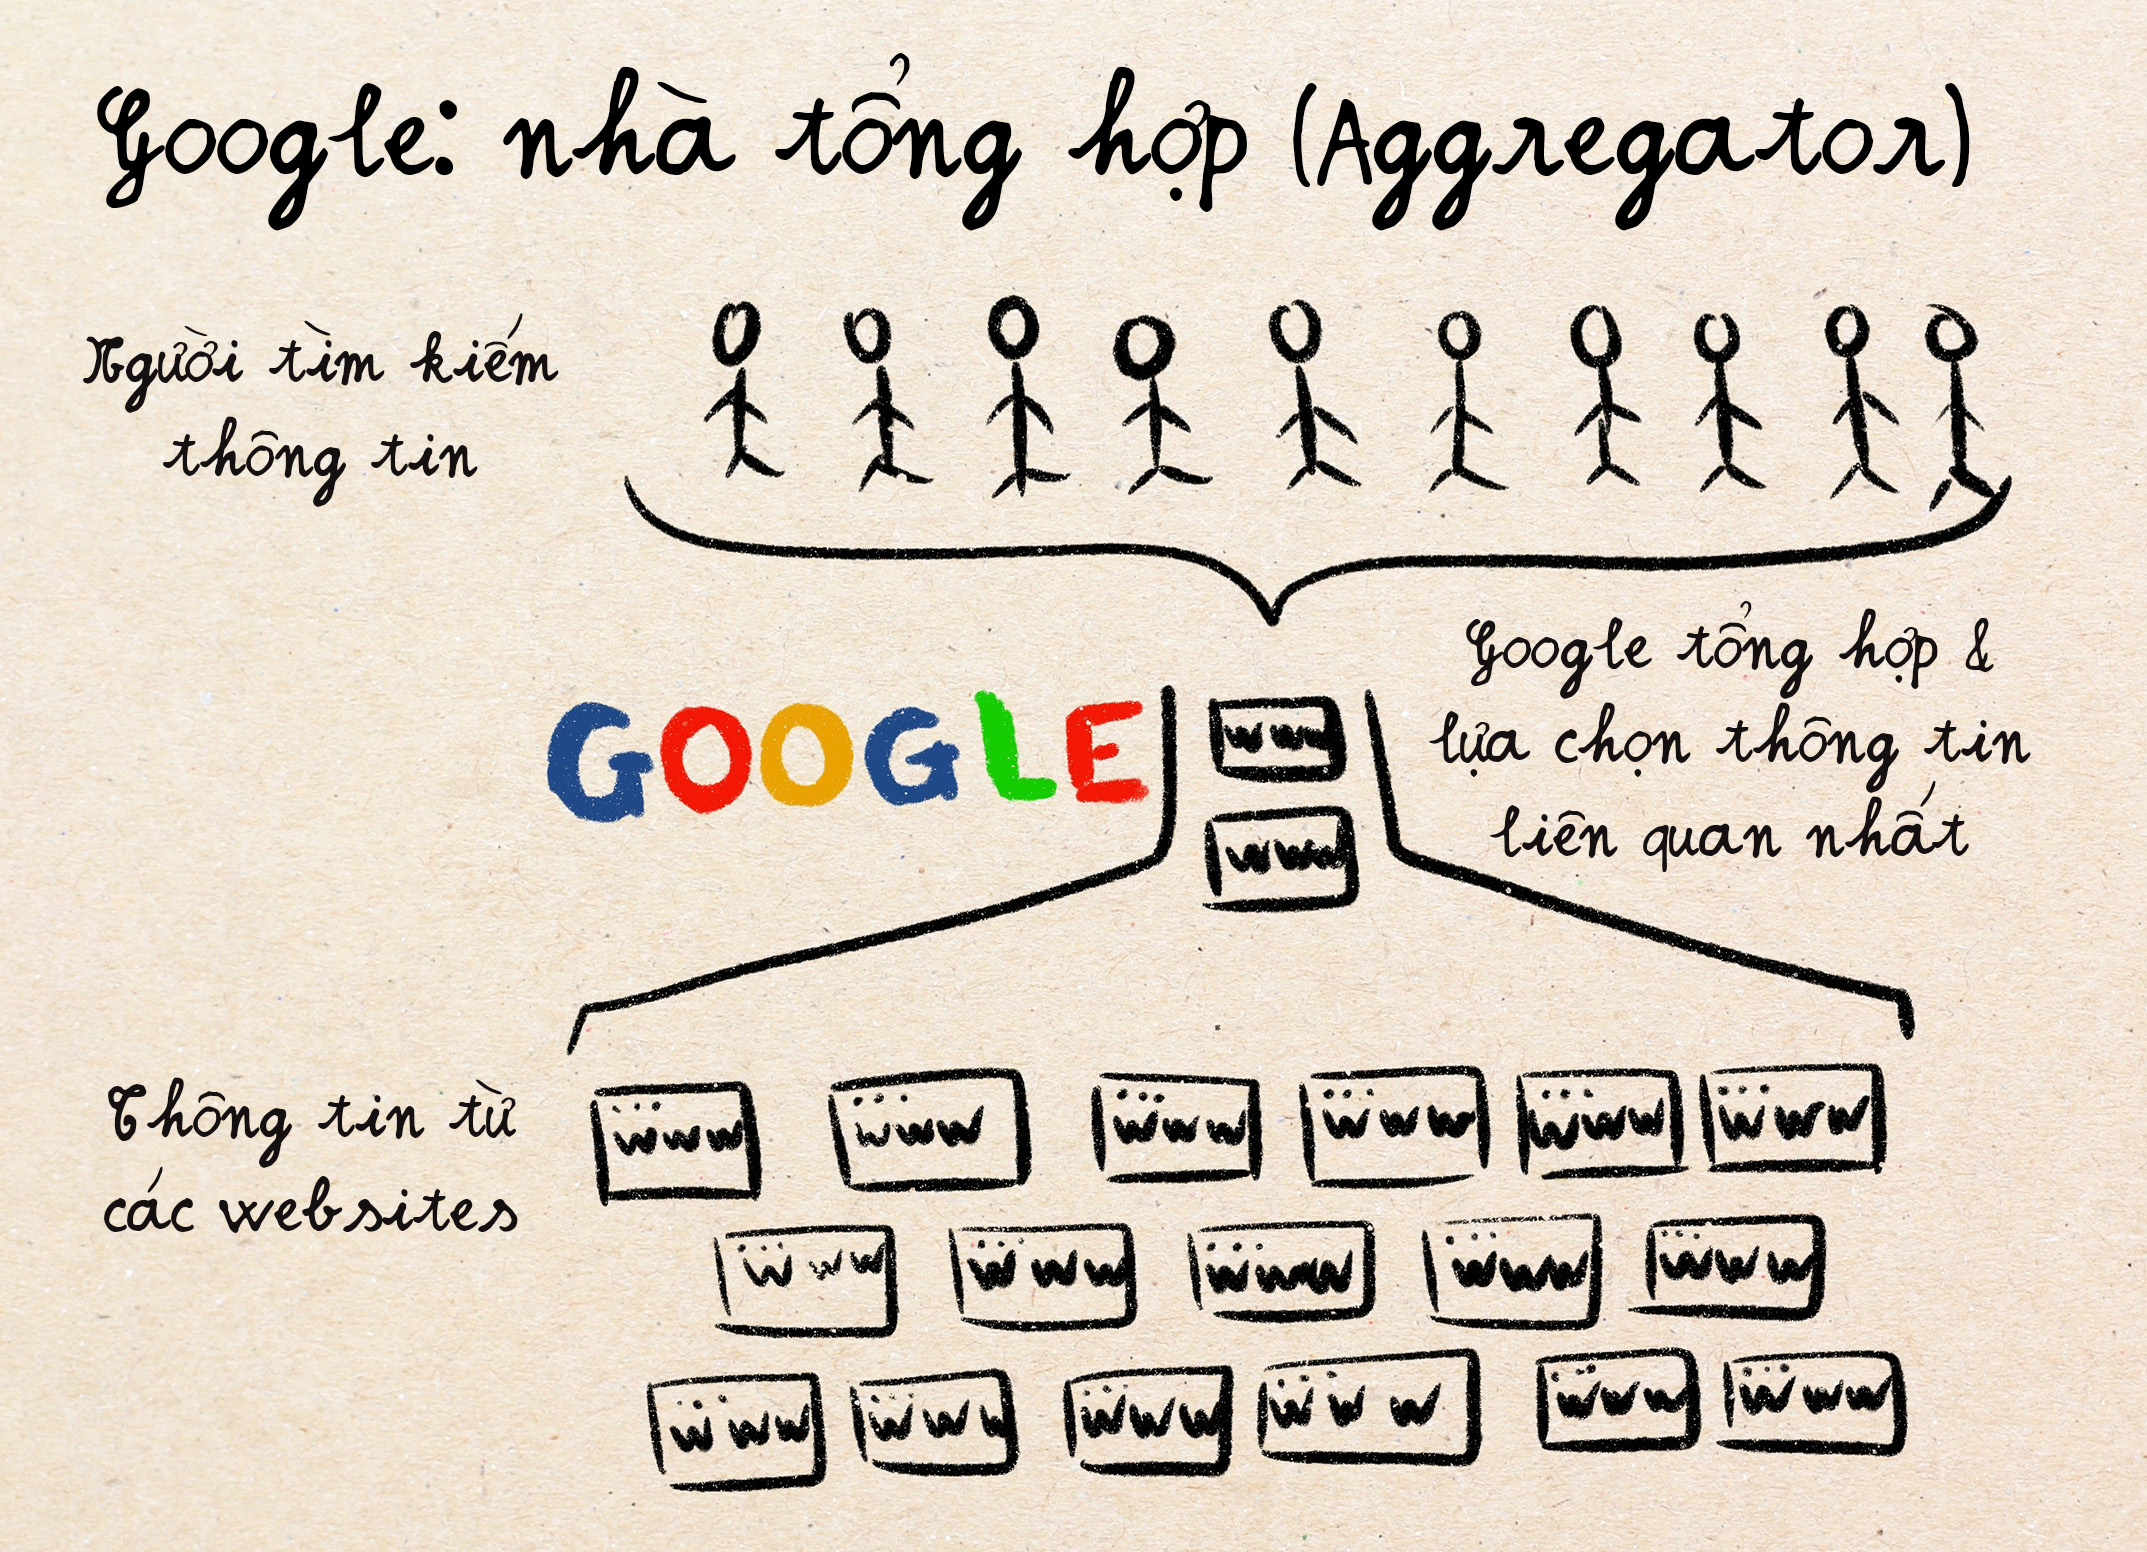 Google: nhà tổng hợp (Aggregator)
Người tìm kiếm
thông tin
Google tổng hợp &
lựa chọn thông tin
liên quan nhất
GOOGLE
www
www
Thông tin từ
các websites
www www www www www www
www www www www www
www www www www www www